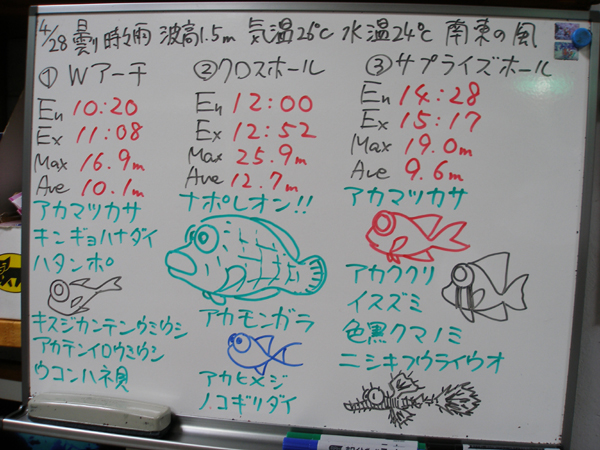 4/28 曇り時々雨 波高1.5m 気温26℃ 水温24℃ 南東の風
① Wアーチ
En 10:20
Ex 11:08
Max 16.9m
Ave 10.1m
アカマツカサ
キンギョハナダイ
ハタンポ
キスジカンテンウミウシ
アカテンイロウミウシ
ウコンハネ貝
② クロスホール
En 12:00
Ex 12:52
Max 25.9m
Ave 12.7m
ナポレオン!!
アカモンガラ
アカヒメジ
ノコギリダイ
③ サプライズホール
En 14:28
Ex 15:17
Max 19.0m
Ave 9.6m
アカマツカサ
アカククリ
イスズミ
色黒クマノミ
ニシキフウライウオ